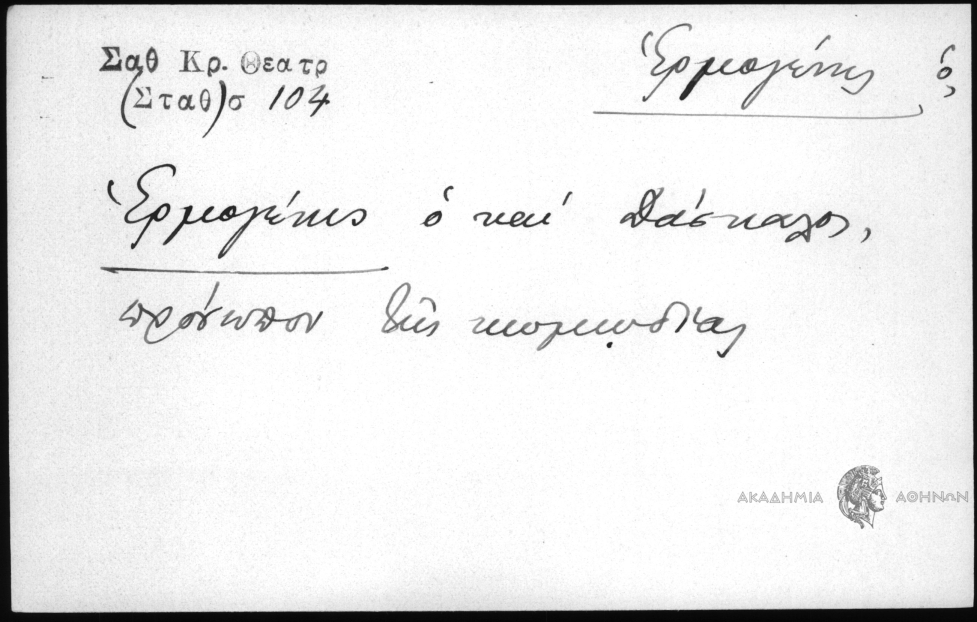 Σαθ Κρ. Θεατρ
(Σταθ)σ 104
Ἑρμογένης, ὁ,
Ἑρμογένης ὁ καί Δάσκαλος,
πρόσωπον τῆς κωμῳδίας
ΑΚΑΔΗΜΙΑ ΑΘΗΝΩΝ